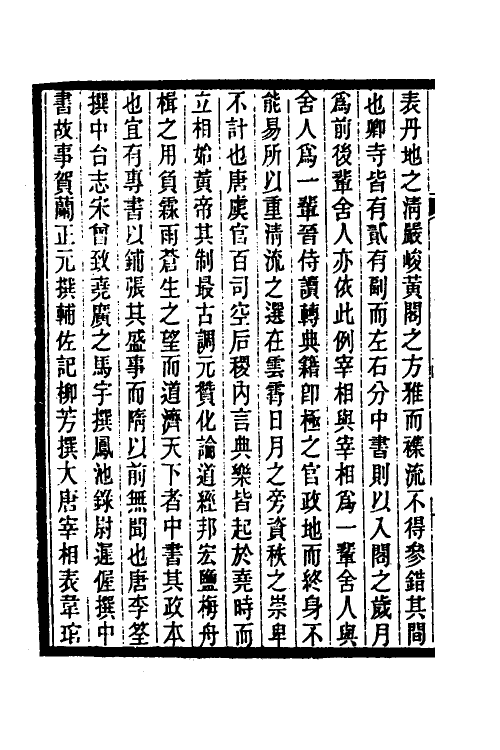 表丹地之清嚴峻黃閣之方雅而襍流不得參錯其間
也卿寺皆有貳有副而左右分中書則以入閣之歲月
爲前後輩舍人亦依此例宰相與宰相爲一輩舍人與
舍人爲一輩晉侍讀轉典籍卽極之官政地而終身不
能易所以重清流之選在雲霄日月之旁資秩之崇卑
不計也唐虞官百司空后稷內言典樂皆起於堯時而
立相始黃帝其制最古調元贊化論道經邦宏鹽梅舟
楫之用負霖雨蒼生之望而道濟天下者中書其政本
也宜有專書以鋪張其盛事而隋以前無聞也唐李筌
撰中台志宋曾致堯廣之馬宇撰鳳池錄尉遲偓撰中
書故事賀蘭正元撰輔佐記柳芳撰大唐宰相表韋琯